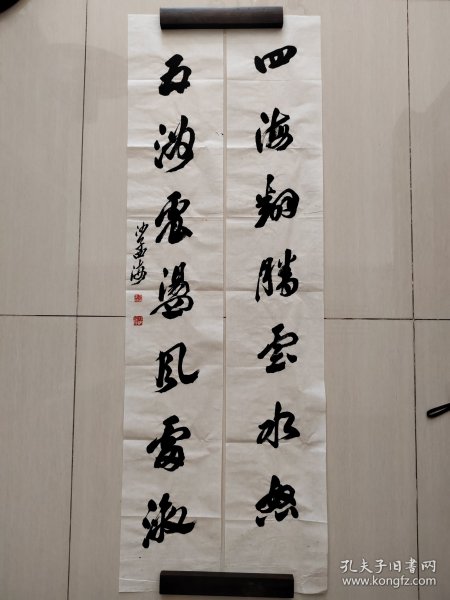 四海翻騰雲水怒
五洲震盪風雷激
沙孟海
孔夫子旧书网
www.kongfz.com